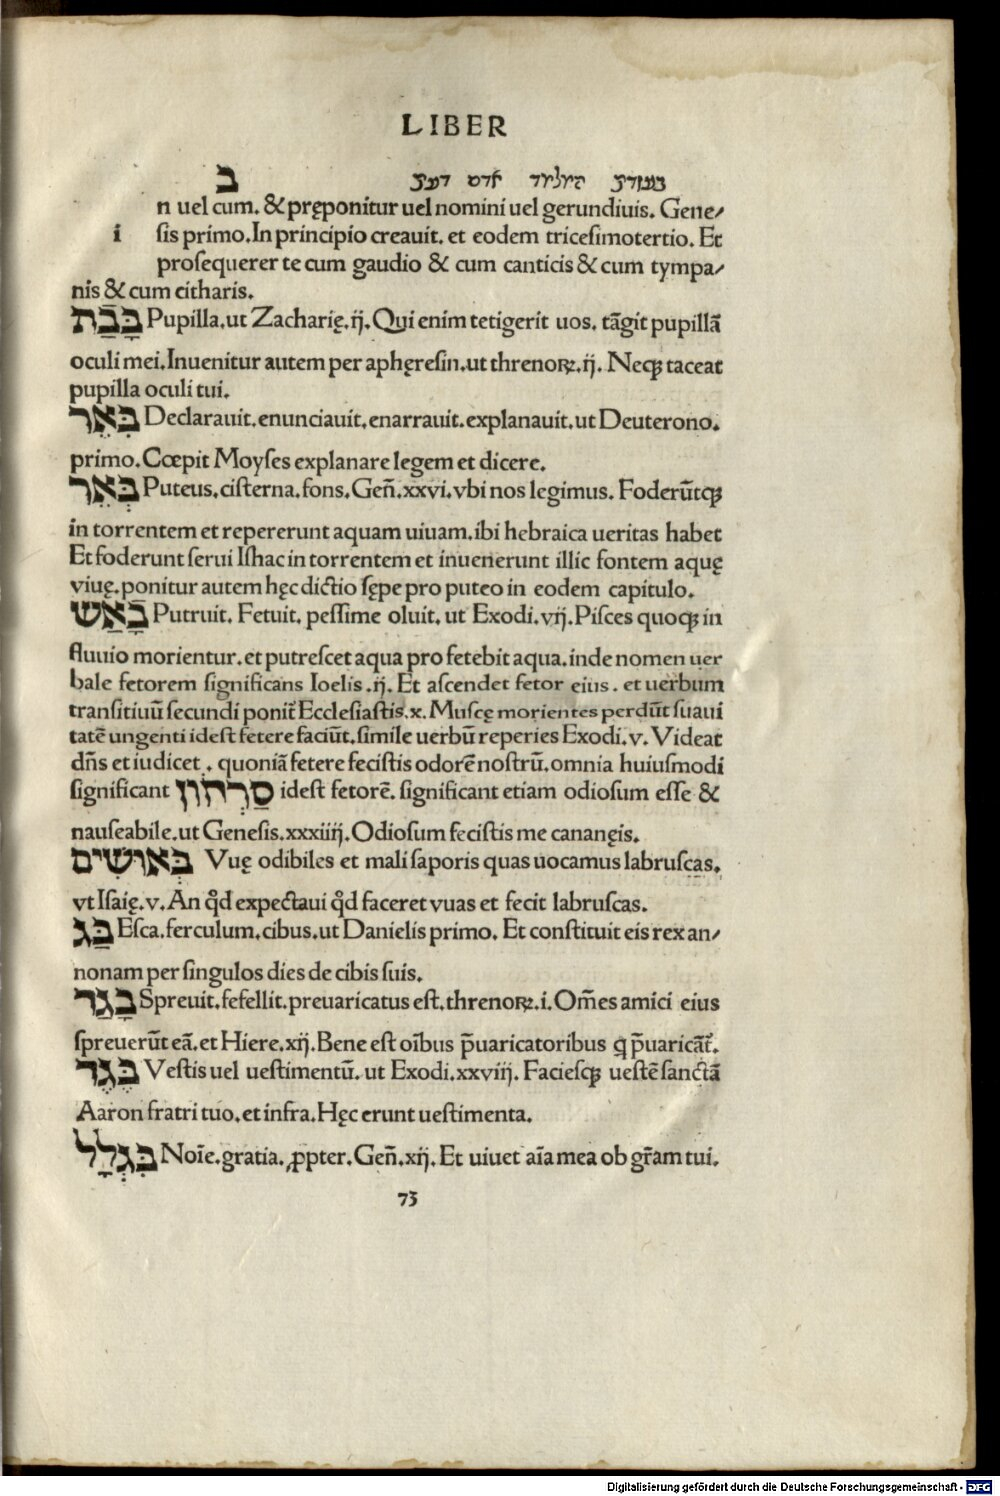 LIBER
ב
n uel cum. & pręponitur uel nomini uel gerundiuis. Gene⸗
i sis primo. In principio creauit. et eodem tricesimotertio. Et
prosequerer te cum gaudio & cum canticis & cum tympa⸗
nis & cum citharis.
בָּבַת Pupilla. ut Zacharię. ij. Qui enim tetigerit uos. tãgit pupillã
oculi mei. Inuenitur autem per aphęresin. ut threnoꝝ. ij. Neqꝫ taceat
pupilla oculi tui.
בֵּאֵר Declarauit. enunciauit. enarrauit. explanauit. ut Deuterono.
primo. Cœpit Moyses explanare legem et dicere.
בְּאֵר Puteus. cisterna. fons. Geñ. xxvi. vbi nos legimus. Foderũtqꝫ
in torrentem et repererunt aquam uiuam. ibi hebraica ueritas habet
Et foderunt serui Ishac in torrentem et inuenerunt illic fontem aquę
viuę. ponitur autem hęc dictio sępe pro puteo in eodem capitulo.
בָּאַשׁ Putruit. Fetuit. pessime oluit. ut Exodi. vij. Pisces quoqꝫ in
fluuio morientur. et putrescet aqua pro fetebit aqua. inde nomen uer
bale fetorem significans Ioelis. ij. Et ascendet fetor eius. et uerbum
transitiuũ secundi ponit̃ Ecclesiastis. x. Muscę morientes perdũt suaui
tatẽ ungenti idest fetere faciũt. simile uerbũ reperies Exodi. v. Videat
dñs et iudicet. quoniã fetere fecistis odorẽ nostrũ. omnia huiusmodi
significant סַרְהוֹן idest fetorẽ. significant etiam odiosum esse &
nauseabile. ut Genesis. xxxiiij. Odiosum fecistis me cananęis.
בְּאוּשִׁים Vuę odibiles et mali saporis quas uocamus labruscas.
vt Isaię. v. An qđ expectaui qđ faceret vuas et fecit labruscas.
בַּג Esca. ferculum. cibus. ut Danielis primo. Et constituit eis rex an⸗
nonam per singulos dies de cibis suis.
בָּגַד Spreuit. fefellit. preuaricatus est. threnoꝝ. i. Om̃es amici eius
spreuerũt eã. et Hiere. xij. Bene est oĩbus p̃uaricatoribus q̃ p̃uaricãt̃.
בֶּגֶד Vestis uel uestimentũ. ut Exodi. xxviij. Faciesqꝫ uestẽ sanctã
Aaron fratri tuo. et infra. Hęc erunt uestimenta.
בִּגְלָל Noĩe. gratia. ꝓpter. Geñ. xij. Et uiuet aĩa mea ob gr̃am tui.
73
Digitalisierung gefördert durch die Deutsche Forschungsgemeinschaft - DFG